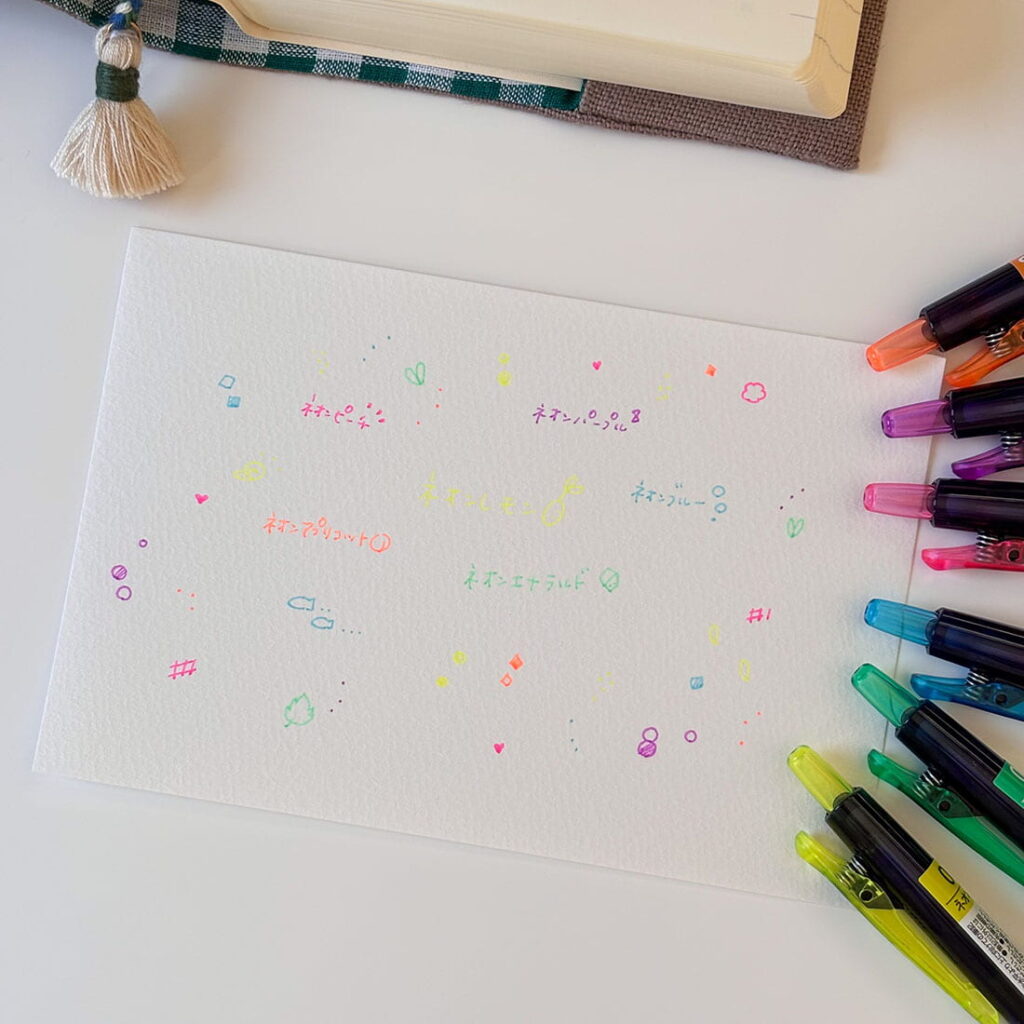 ネオンピーチ
ネオンパープル
ネオンレモン
ネオンブルー
ネオンアプリコット
ネオンエメラルド
#1